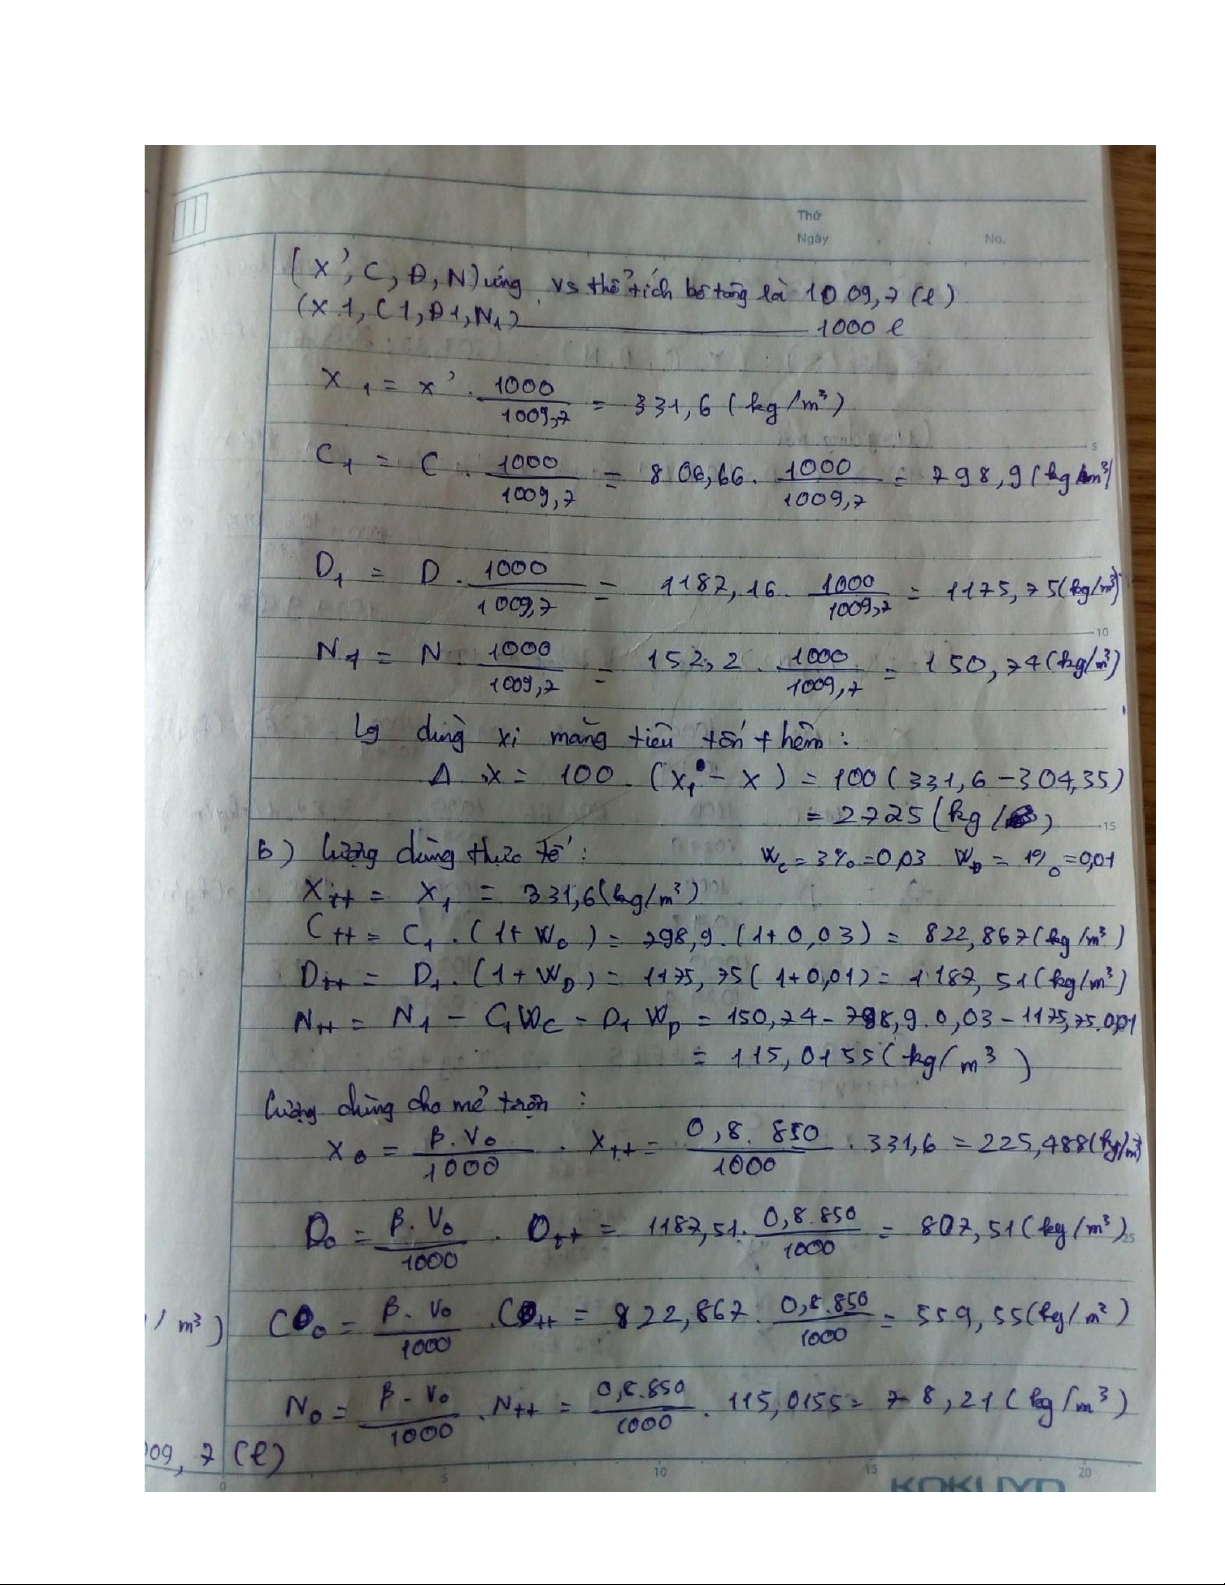 Thứ
Ngày No.
(X', C, Đ, N) ứng vs thể tích bê tông là 1009,7 (l)
(X1, C1, Đ1, N1) ———— 1000 l
X1 = X' . 1000/1009,7 = 331,6 (kg/m³)
C1 = C . 1000/1009,7 = 806,66 . 1000/1009,7 = 798,9 (kg/m³)
D1 = D . 1000/1009,7 = 1187,16 . 1000/1009,7 = 1175,75 (kg/m³)
N1 = N . 1000/1009,7 = 152,2 . 1000/1009,7 = 150,74 (kg/m³)
Lg dùng xi măng tiêu tốn thêm :
Δ X = 100 . (X1 - X) = 100 (331,6 - 304,35)
= 2725 (kg/ )
b) lượng dùng thực tế : Wc = 3% = 0,03 WD = 1% = 0,01
Xtt = X1 = 331,6 (kg/m³)
Ctt = C1 . (1 + Wc) = 798,9 . (1 + 0,03) = 822,867 (kg/m³)
Dtt = D1 . (1 + WD) = 1175,75 (1 + 0,01) = 1187,51 (kg/m³)
Ntt = N1 - C1Wc - D1 WD = 150,74 - 798,9 . 0,03 - 1175,75 . 0,01
= 115,0155 (kg/m³)
lượng dùng cho mẻ trộn :
X0 = β.V0/1000 . Xtt = 0,8 . 850/1000 . 331,6 = 225,488 (kg/m³)
D0 = β.V0/1000 . Dtt = 1187,51 . 0,8.850/1000 = 807,51 (kg/m³)
/m³) C0 = β.V0/1000 . Ctt = 822,867 . 0,8.850/1000 = 559,55 (kg/m³)
N0 = β.V0/1000 . Ntt = 0,8.850/1000 . 115,0155 = 78,21 (kg/m³)
009,7 (l)
0 5 10 15 20
KOKUYO